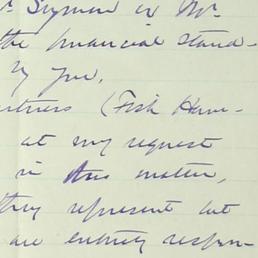 Seymour or Mr.
the financial stand-
by you,
(Fish Have-
at my request
in this matter,
they represent but
are entirely respon-